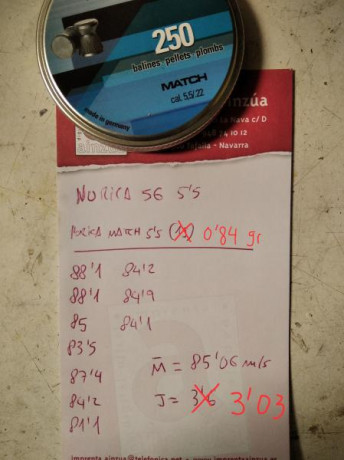 250
balines · pellets · plombs
MATCH
cal. 5,5/.22
made in germany
ainzúa
sa Nava c/D
948 24 10 12
Tafalla - Navarra
NORICA 56 5'5
NORICA MATCH 5'5 0'84 gr
88'1 84'2
88'1 84'9
85 84'1
83'5
87'4 M̄ = 85'06 m/s
84'2 J = 3'6 3'03
81'1
imprenta.ainzua@telefonica.net